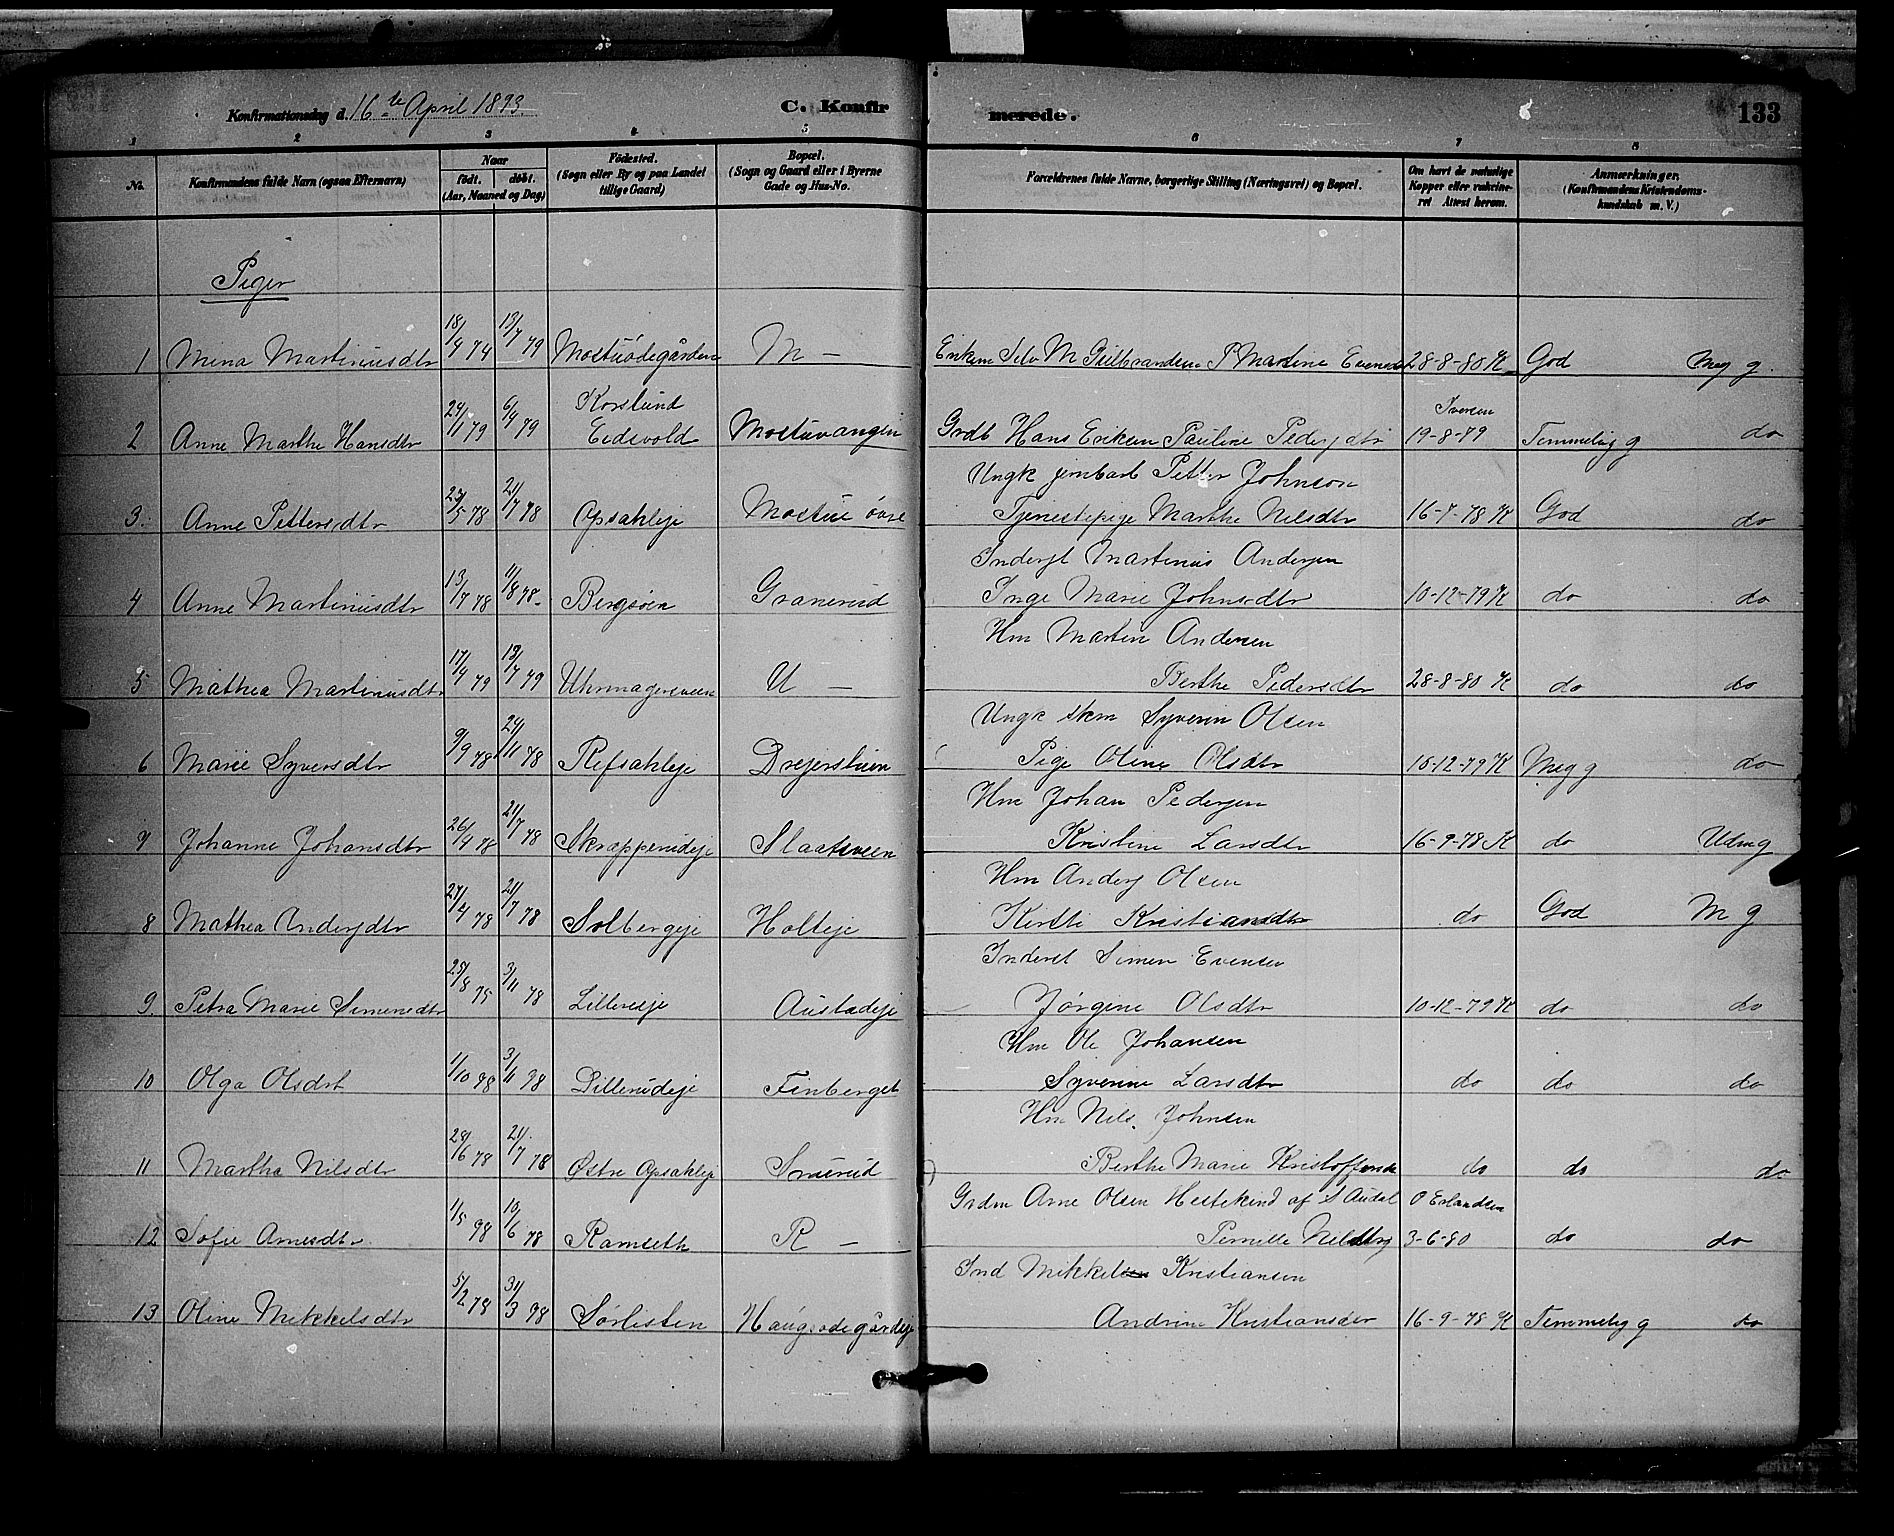 Konfirmationsdag d. 16te April 1893.
C. Konfir
merede.
133
1 2 3 4 5 6 7 8
No.
Konfirmandens fulde Navn (ogsaa Efternavn)
Naar
født. døbt.
(Aar, Maaned og Dag)
Fødested.
(Sogn eller By og paa Landet
tillige Gaard)
Bopæl.
(Sogn og Gaard eller i Byerne
Gade og Hus-No.
Forældrenes fulde Navne, borgerlige Stilling (Næringsvei) og Bopæl.
Om havt de naturlige
Kopper eller vakcine-
ret Attest herom.
Anmærkninger.
(Konfirmandens Kristendoms-
kundskab m. V.)
Piger
1 Mina Martinusdtr 18/4 74 13/7 79 Mostuødegården M — Enkem Selv M Gulbrandsen P Martine Evensdtr 28-8-80 K God Meg g.
Korslund Iversen
2 Anne Marthe Hansdtr 24/1 79 6/4 79 Eidsvold Mostuvangen Grdb Hans Eriksen Pauline Pedersdtr 19-8-79 Temmelig g do
Ungk jernbarb Petter Johnson
3. Anne Pettersdtr 23/5 78 21/7 78 Opsahleje Mostue øvre Tjenestepige Marthe Nilsdtr 16-7-78 K God do
Inderst Martinus Andersen
4 Anne Martinusdtr 13/7 78 11/8 78 Bergsøen Granerud Inge Marie Johnsdtr 10-12-79 K do do
Hm Martin Andersen
5 Mathea Martinusdtr 17/4 79 13/7 79 Uhrmagersveen U — Berthe Pedersdtr 28-8-80 K do do
Ungk skm Syverin Olsen
6 Marie Syversdtr 9/9 78 24/11 78 Refsahleje Drejerstuen Pige Oline Olsdtr 10-12-79 K Meg g do
Hm Johan Pedersen
7 Johanne Johansdtr 26/4 78 21/7 78 Skrapperudeje Slaatsveen Kristine Larsdtr 16-9-78 K do Udm g
Hm Anders Olsen
8 Mathea Andersdtr 27/4 78 21/7 78 Solbergeje Holteje Kirsti Kristiansdtr do God M g
Inderst Simen Evensen
9. Petra Marie Simensdtr 25/8 75 3/11 78 Lillerudeje Austadeje Jørgene Olsdtr 10-12-79 K do do
Hm Ole Johansen
10 Olga Olsdtr 1/10 78 3/11 78 Lillerudeje Finberget Syverine Larsdtr do do do
Hm Nils Johnsen
11 Martha Nilsdtr 28/6 78 21/7 78 Østre Opsahleje Smerud Berthe Marie Kristoffersdtr do do do
Grdm Arne Olsen Hestekind af S Audal O Erlandsen
12 Sofie Arnesdtr 1/5 78 10/6 78 Ramseth R — Pernille Nilsdtr 3-6-80 do do
Ind Mikkel Kristiansen
13 Oline Mikkelsdtr 5/2 78 31/3 78 Sørlisten Haugsødegårdeje Andrine Kristiansdtr 16-9-78 K Temmelig g do